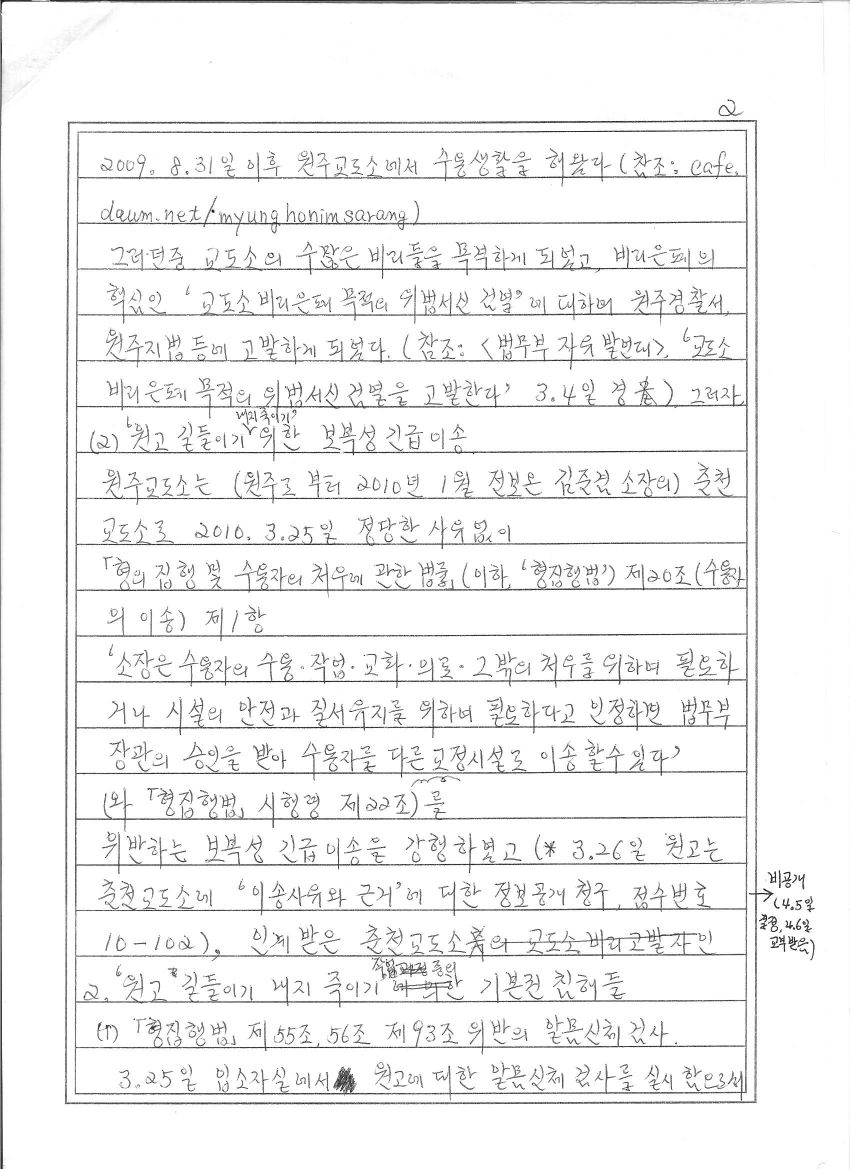 2
2009. 8.31일 이후 원주교도소에서 수용생활을 해왔다 (참조: cafe.
daum.net/myunghonimsarang)
그러던중 교도소의 수많은 비리들을 목격하게 되었고, 비리은폐의
핵심인 '교도소비리은폐 목적의 위법서신 검열'에 대하여 원주경찰서,
원주지법 등에 고발하게 되었다. (참조: <법무부 자유발언대>, '교도소
비리은폐 목적의 위법서신 검열을 고발한다' 3.4일 경), 그러자,
(2) '원고 길들이기 내지 죽이기' 위한 보복성 긴급이송
원주교도소는 (원주로 부터 2010년 1월 전보온 김준겸 소장의) 춘천
교도소로 2010. 3.25일 정당한 사유없이
「형의 집행 및 수용자의 처우에 관한 법률」(이하, '형집행법') 제20조 (수용자
의 이송) 제1항
'소장은 수용자의 수용·작업·교화·의료·그밖의 처우를 위하여 필요하
거나 시설의 안전과 질서유지를 위하여 필요하다고 인정하면 법무부
장관의 승인을 받아 수용자를 다른 교정시설로 이송할수 있다'
(와 「형집행법」 시행령 제22조)를
위반하는 보복성 긴급이송을 강행하였고 (* 3.26일 원고는
춘천교도소에 '이송사유와 근거'에 대한 정보공개 청구, 접수번호
10-102), 인계받은 춘천교도소의 교도소비리고발자인
비공개
(4.5일
결정, 4.6일
교부받음)
2. '원고' 길들이기 내지 죽이기 작업 중의 기본권 침해들
(1) 「형집행법」 제55조, 56조 제93조 위반의 알몸신체검사.
3.25일 입소자실에서 원고에 대한 알몸신체 검사를 실시 함으로써